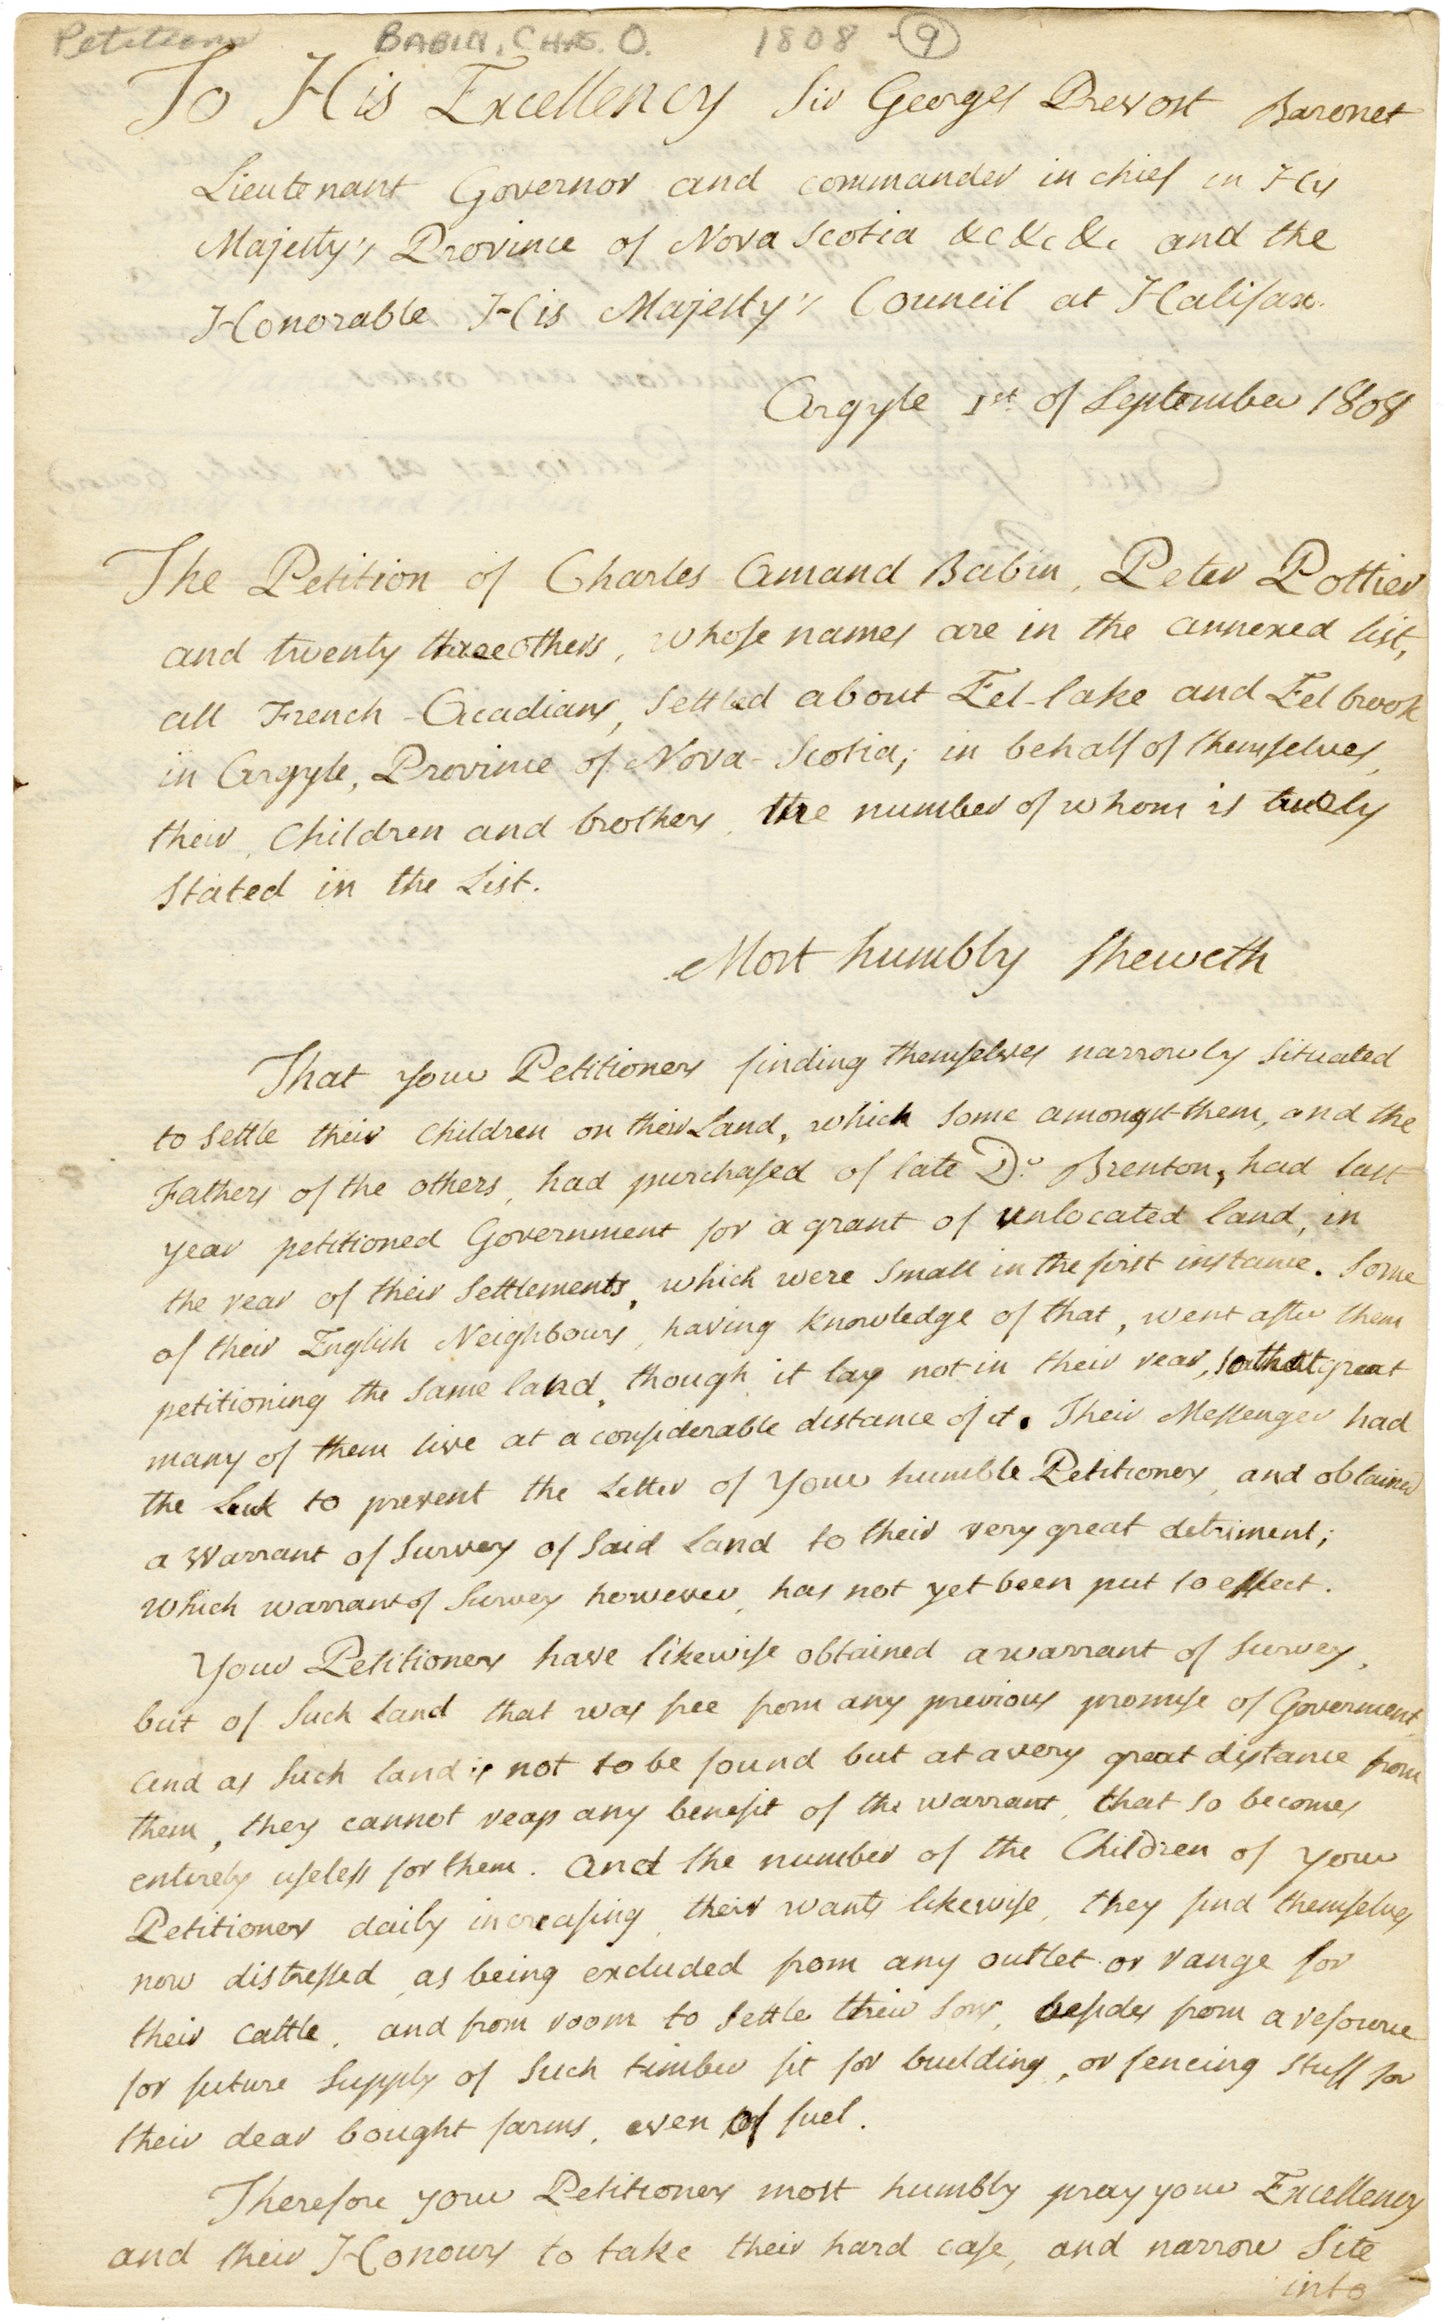 Petitions BABIN, CHAS. O. 1808 - 9
To His Excellency Sir George Prevost Baronet
Lieutenant Governor and commander in chief in His
Majesty's Province of Nova Scotia &c &c &c and the
Honorable His Majesty's Council at Halifax.
Argyle 1st of September 1808
The Petition of Charles Amand Babin, Peter Pottier
and twenty three others, whose names are in the annexed list,
all French-Acadians, Settled about Eel-lake and Eel brook
in Argyle, Province of Nova-Scotia; in behalf of themselves,
their Children and brothers, the number of whom is truely
Stated in the List.
Most humbly Sheweth
That your Petitioners finding themselves narrowly Situated
to Settle their Children on their Land, which Some amongst them, and the
Fathers of the others, had purchased of late Dr Brenton, had last
year petitioned Government for a grant of unlocated land, in
the rear of their Settlements, which were Small in the first instance. Some
of their English Neighbours, having knowledge of that, went after them
petitioning the Same land, though it lay not in their rear, so that great
many of them live at a considerable distance of it. Their Messenger had
the Luck to prevent the Letter of Your humble Petitioners, and obtained
a Warrant of Survey of Said Land to their very great detriment;
Which warrant of Survey however, has not yet been put to effect.
Your Petitioners have likewise obtained a warrant of Survey,
but of Such Land that was free from any previous promise of Goverment,
and as Such land is not to be found but at a very great distance from
them, they cannot reap any benefit of the warrant, that so becomes
entirely useless for them. And the number of the Children of your
Petitioners daily increasing, their wants likewise, they find themselves
now distressed, as being excluded from any outlet or range for
their Cattle, and from room to Settle their Sons, besides from a resource
for future Supply of Such timber fit for building, or fencing Stuff for
their dear bought farms, even of fuel.
Therefore your Petitioners most humbly pray your Excellency
and their Honours to take their hard case, and narrow Site
into